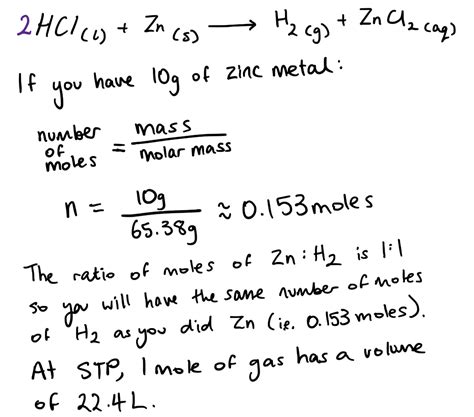 2HCl(l) + Zn(s) ⟶ H₂(g) + ZnCl₂(aq)
If you have 10g of zinc metal:
number of moles = mass / molar mass
n = 10g / 65.38g ≈ 0.153 moles
The ratio of moles of Zn:H₂ is 1:1
so you will have the same number of moles
of H₂ as you did Zn (ie. 0.153 moles).
At STP, 1 mole of gas has a volume
of 22.4L.